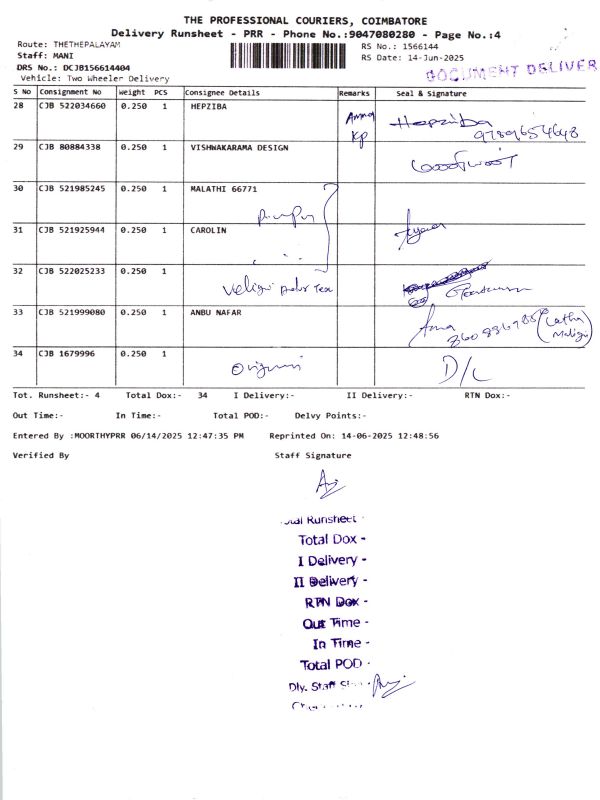 THE PROFESSIONAL COURIERS, COIMBATORE
Delivery Runsheet - PRR - Phone No.:9047080280 - Page No.:4
Route: THETHEPALAYAM
RS No.: 1566144
Staff: MANI
RS Date: 14-Jun-2025
DRS No.: DCJB156614404
DOCUMENT DELIVER
Vehicle: Two Wheeler Delivery
S No Consignment No Weight PCS Consignee Details Remarks Seal & Signature
28 CJB 522034660 0.250 1 HEPZIBA Amma Hepziba
KP 9789654648
29 CJB 80884338 0.250 1 VISHWAKARAMA DESIGN
30 CJB 521985245 0.250 1 MALATHI 66771
31 CJB 521925944 0.250 1 CAROLIN
32 CJB 522025233 0.250 1
33 CJB 521999080 0.250 1 ANBU NAFAR Amma (Latha
34 CJB 1679996 0.250 1 D/C
Tot. Runsheet:- 4 Total Dox:- 34 I Delivery:- II Delivery:- RTN Dox:-
Out Time:- In Time:- Total POD:- Delvy Points:-
Entered By :MOORTHYPRR 06/14/2025 12:47:35 PM Reprinted On: 14-06-2025 12:48:56
Verified By Staff Signature
Runsheet -
Total Dox -
I Delivery -
II Delivery -
RTN Dox -
Out Time -
In Time -
Total POD -
Dly. Staff